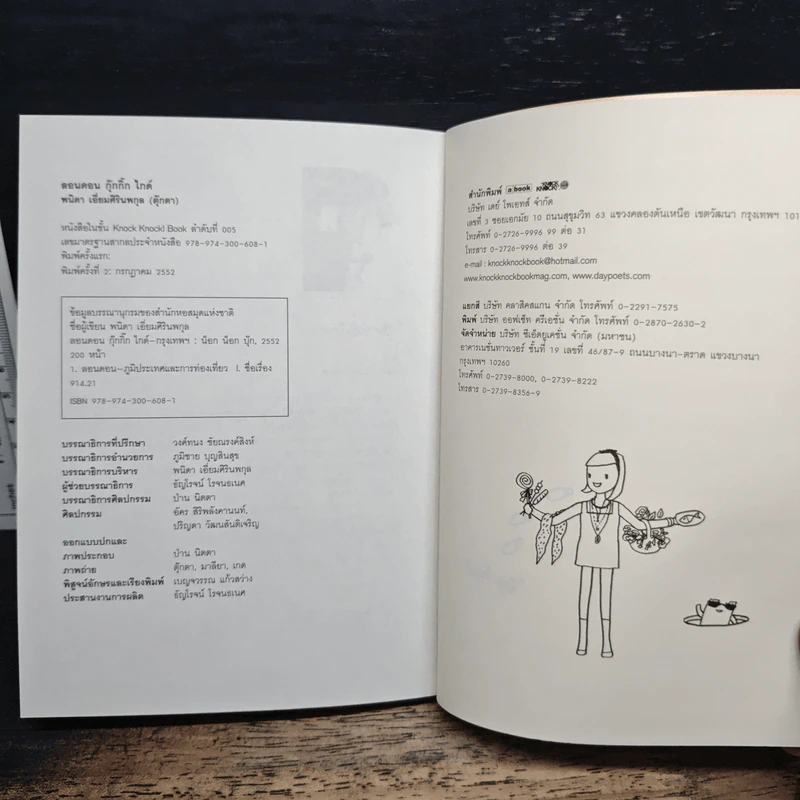 ลอนดอน กุ๊กกิ๊ก ไกด์
พนิดา เอี่ยมศิรินพกุล (ตุ๊กตา)
หนังสือในชั้น Knock Knock! Book ลำดับที่ 005
เลขมาตรฐานสากลประจำหนังสือ 978-974-300-608-1
พิมพ์ครั้งแรก:
พิมพ์ครั้งที่ 2: กรกฎาคม 2552
ข้อมูลบรรณานุกรมของสำนักหอสมุดแห่งชาติ
ชื่อผู้เขียน พนิดา เอี่ยมศิรินพกุล
ลอนดอน กุ๊กกิ๊ก ไกด์-กรุงเทพฯ : น็อก น็อก บุ๊ก, 2552
200 หน้า
1. ลอนดอน-ภูมิประเทศและการท่องเที่ยว I. ชื่อเรื่อง
914.21
ISBN 978-974-300-608-1
บรรณาธิการที่ปรึกษา วงศ์ทนง ชัยณรงค์สิงห์
บรรณาธิการอำนวยการ ภูมิชาย บุญสินสุข
บรรณาธิการบริหาร พนิดา เอี่ยมศิรินพกุล
ผู้ช่วยบรรณาธิการ ธัญโรจน์ โรจนธเนศ
บรรณาธิการศิลปกรรม ป่าน นิตตา
ศิลปกรรม อัคร สิริพลังคานนท์,
ปริญดา วัฒนสันติเจริญ
ออกแบบปกและ
ภาพประกอบ ป่าน นิตตา
ภาพถ่าย ตุ๊กตา, มาลียา, เกด
พิสูจน์อักษรและเรียงพิมพ์ เบญจวรรณ แก้วสว่าง
ประสานงานการผลิต ธัญโรจน์ โรจนธเนศ
สำนักพิมพ์ a book KNOCK KNOCK!
บริษัท เดย์ โพเอทส์ จำกัด
เลขที่ 3 ซอยเอกมัย 10 ถนนสุขุมวิท 63 แขวงคลองตันเหนือ เขตวัฒนา กรุงเทพฯ 101
โทรศัพท์ 0-2726-9996 99 ต่อ 31
โทรสาร 0-2726-9996 ต่อ 39
e-mail : knockknockbook@hotmail.com
www.knockknockbookmag.com, www.daypoets.com
แยกสี บริษัท คลาสิคสแกน จำกัด โทรศัพท์ 0-2291-7575
พิมพ์ บริษัท ออฟเซ็ท ครีเอชั่น จำกัด โทรศัพท์ 0-2870-2630-2
จัดจำหน่าย บริษัท ซีเอ็ดยูเคชั่น จำกัด (มหาชน)
อาคารเนชั่นทาวเวอร์ ชั้นที่ 19 เลขที่ 46/87-9 ถนนบางนา-ตราด แขวงบางนา
กรุงเทพฯ 10260
โทรศัพท์ 0-2739-8000, 0-2739-8222
โทรสาร 0-2739-8356-9